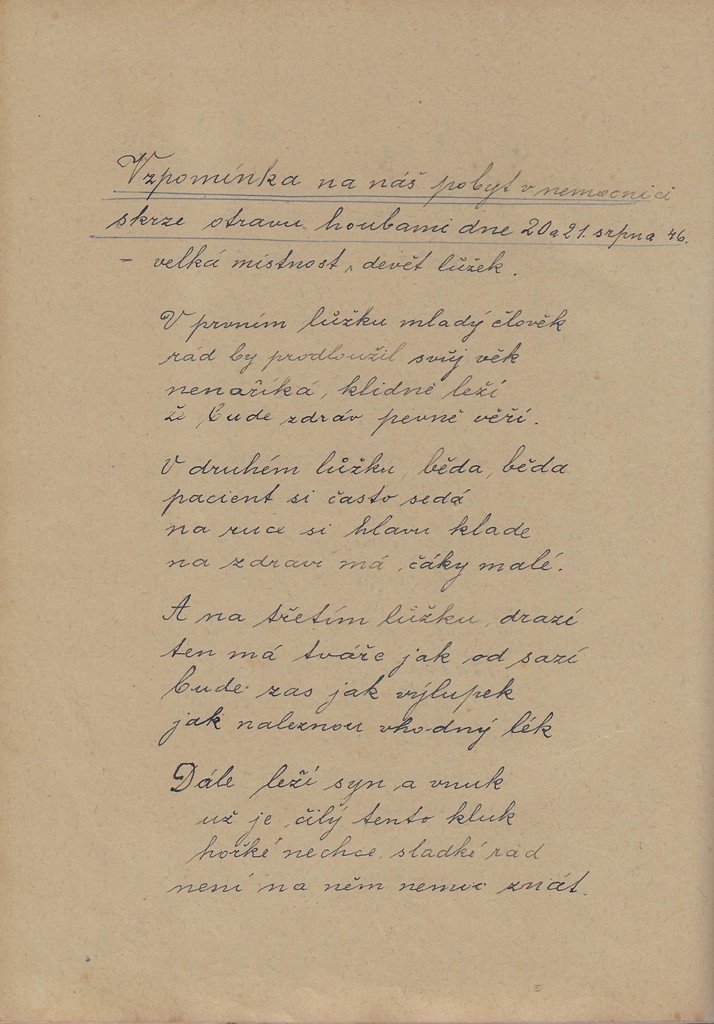 Vzpomínka na náš pobyt v nemocnici
skrze otravu houbami dne 20 a 21. srpna 46.
- velká místnost, devět lůžek.
V prvním lůžku mladý člověk
rád by prodloužil svůj věk
nenaříká, klidně leží
že bude zdráv pevně věří.
V druhém lůžku, běda, běda
pacient si často sedá
na ruce si hlavu klade
na zdraví má, čáky malé.
A na třetím lůžku, drazí
ten má tváře jak od sazí
bude zas jak výlupek
jak naleznou vhodný lék
Dále leží syn a vnuk
už je, čilý tento kluk
hořké nechce, sladké rád
není na něm nemoc znát.